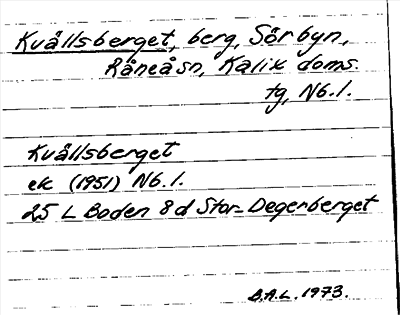 Kvållsberget, berg, Sörbyn,
Råneåsn, Kalix doms.
tg, Nb.l.
Kvållsberget
ek (1951) Nb.l.
25 L Boden 8d Stor-Degerberget
B.A.L. 1973.